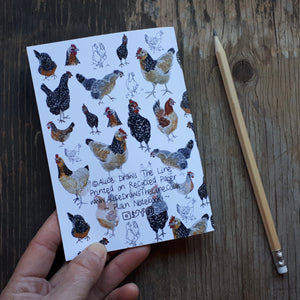 ©Alice Draws The Line
Printed on Recycled Paper
www.AliceDrawsTheLine.com
Plain Notebook